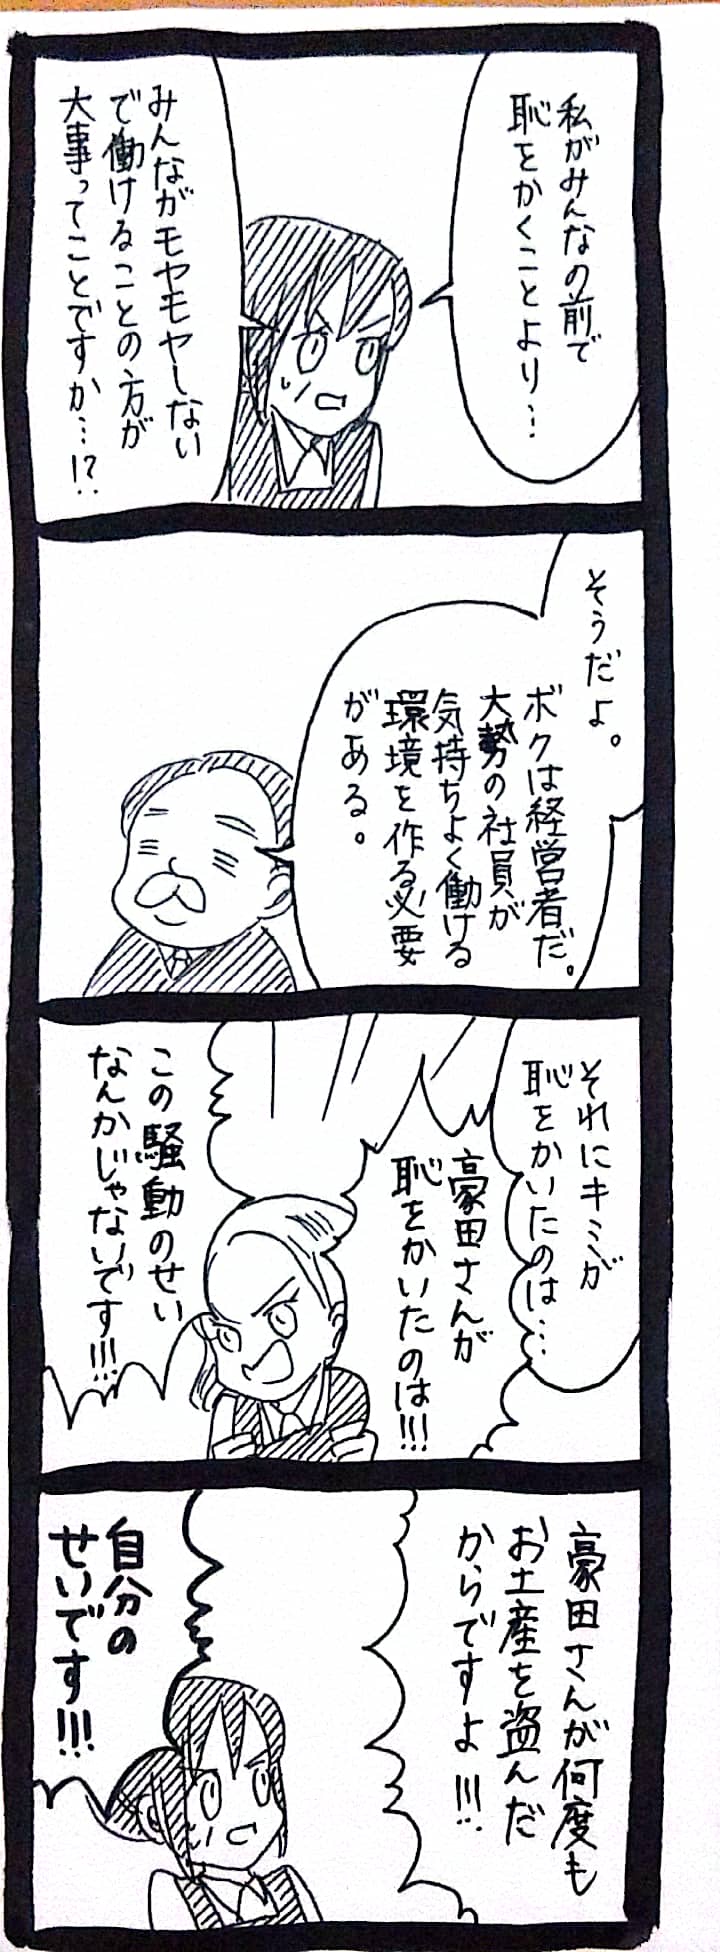 私がみんなの前で
恥をかくことより…
みんながモヤモヤしない
で働けることの方が
大事ってことですか…!?
そうだよ。
ボクは経営者だ。
大勢の社員が
気持ちよく働ける
環境を作る必要
がある。
それにキミが
恥をかいたのは…
豪田さんが
恥をかいたのは!!!
この騒動のせい
なんかじゃないです!!!
豪田さんが何度も
お土産を盗んだ
からですよ!!!
自分の
せいです!!!